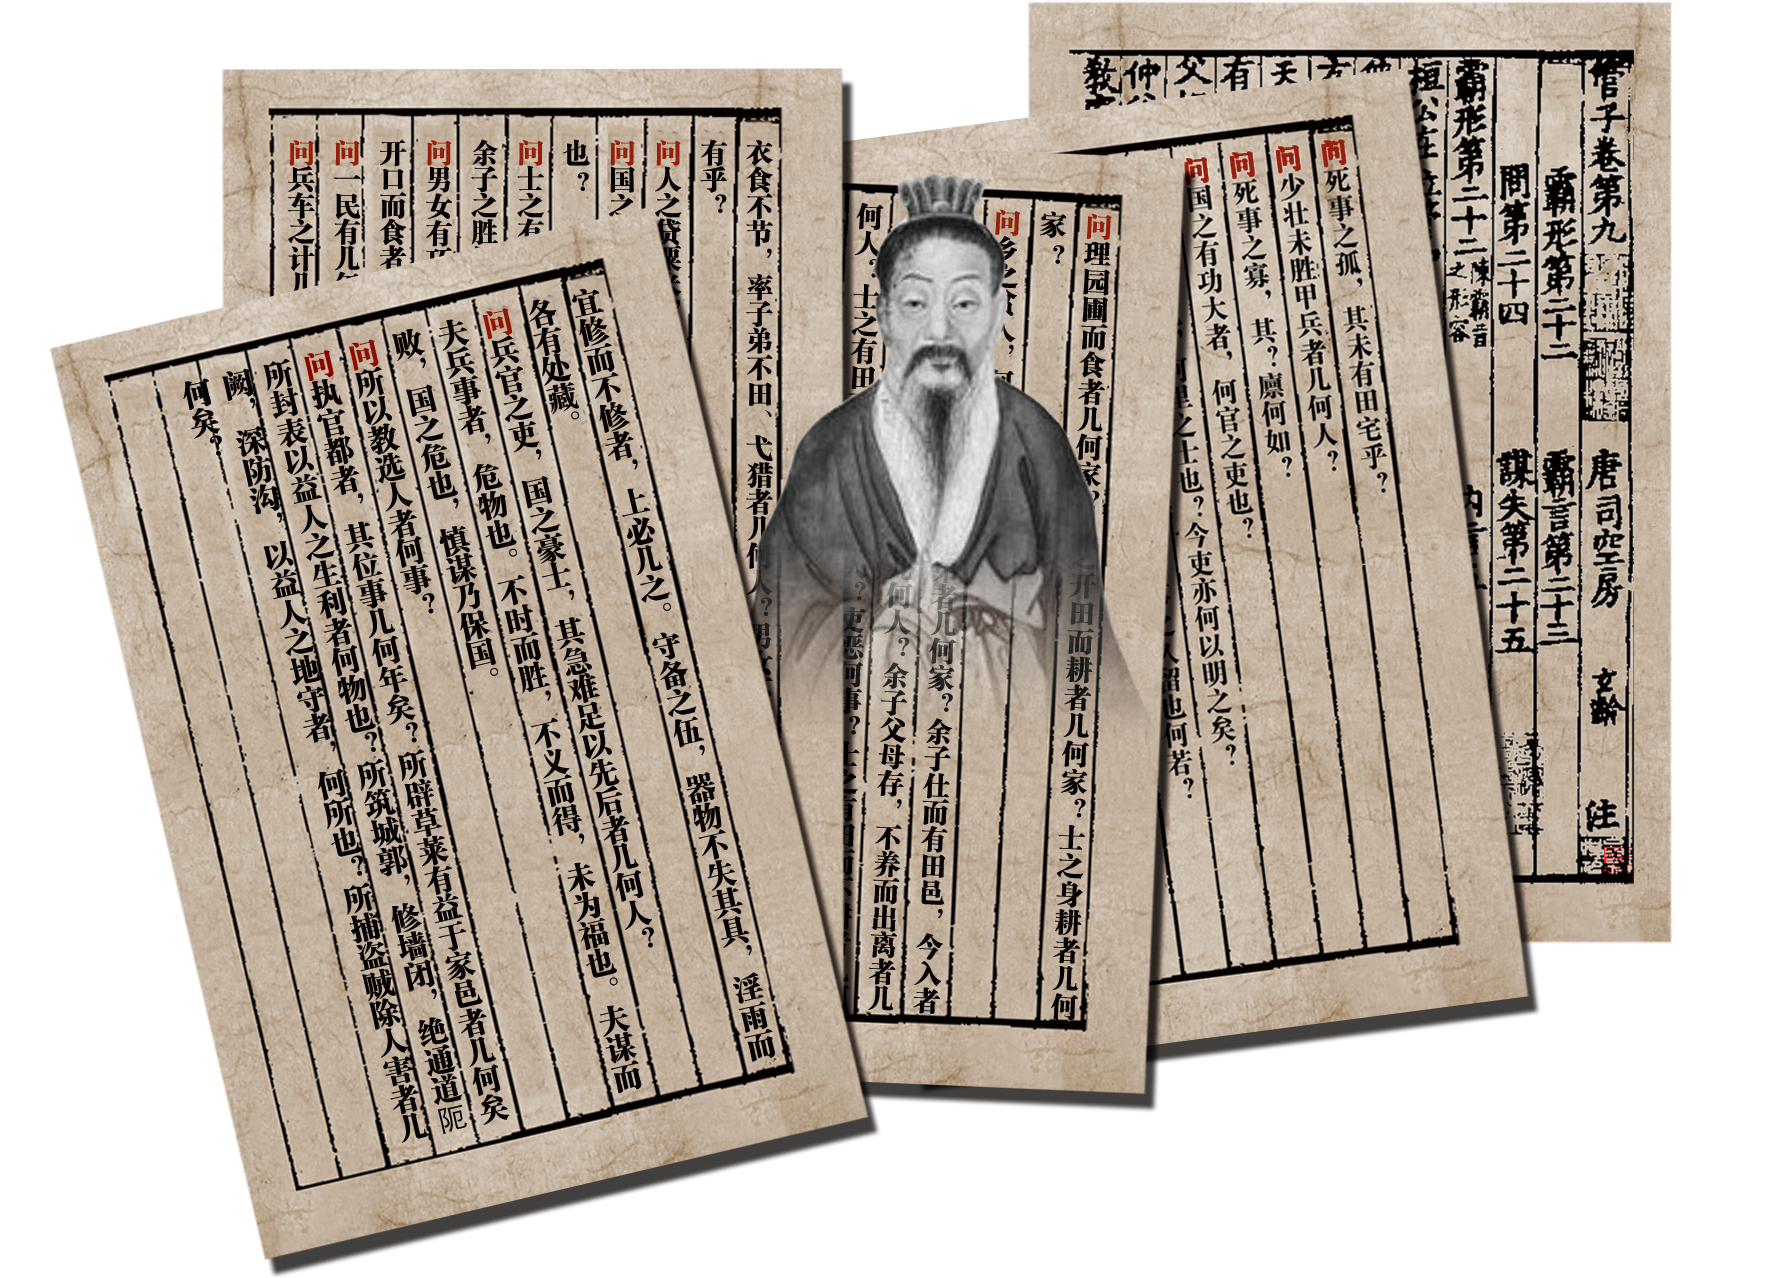 管子卷第九 唐司空房 玄齡 注
霸形第二十二 霸言第二十三
問第二十四 謀失第二十五
霸形第二十二
桓公在
有
父
仲
教
问死事之孤，其未有田宅乎？
问少壮未胜甲兵者几何人？
问死事之寡，其？廪何如？
问国之有功大者，何官之吏也？
之士也？今吏亦何以明之矣？
也何若？
问理园圃而食者几何家？开田而耕者几何家？士之身耕者几何
家？
问
者几何家？余子仕而有田邑，今入者
何人？余子父母存，不养而出离者几
何人？士之有田
吏恶何事？
衣食不节，率子弟不田、弋猎者几何人？男
有乎？
问人之贷粟
问国之
也？
问士之有
余子之胜
问男女有
开口而食者
问一民有几
问兵车之计几
宜修而不修者，上必几之。守备之伍，器物不失其具，淫雨而
各有处藏。
问兵官之吏，国之豪士，其急难足以先后者几何人？
夫兵事者，危物也。不时而胜，不义而得，未为福也。夫谋而
败，国之危也，慎谋乃保国。
问所以教选人者何事？
问执官都者，其位事几何年矣？所辟草菜有益于家邑者几何矣
所封表以益人之生利者何物也？所筑城郭，修墙闭，绝通道阨
阙，深防沟，以益人之地守者，何所也？所捕盗贼除人害者几
何矣？